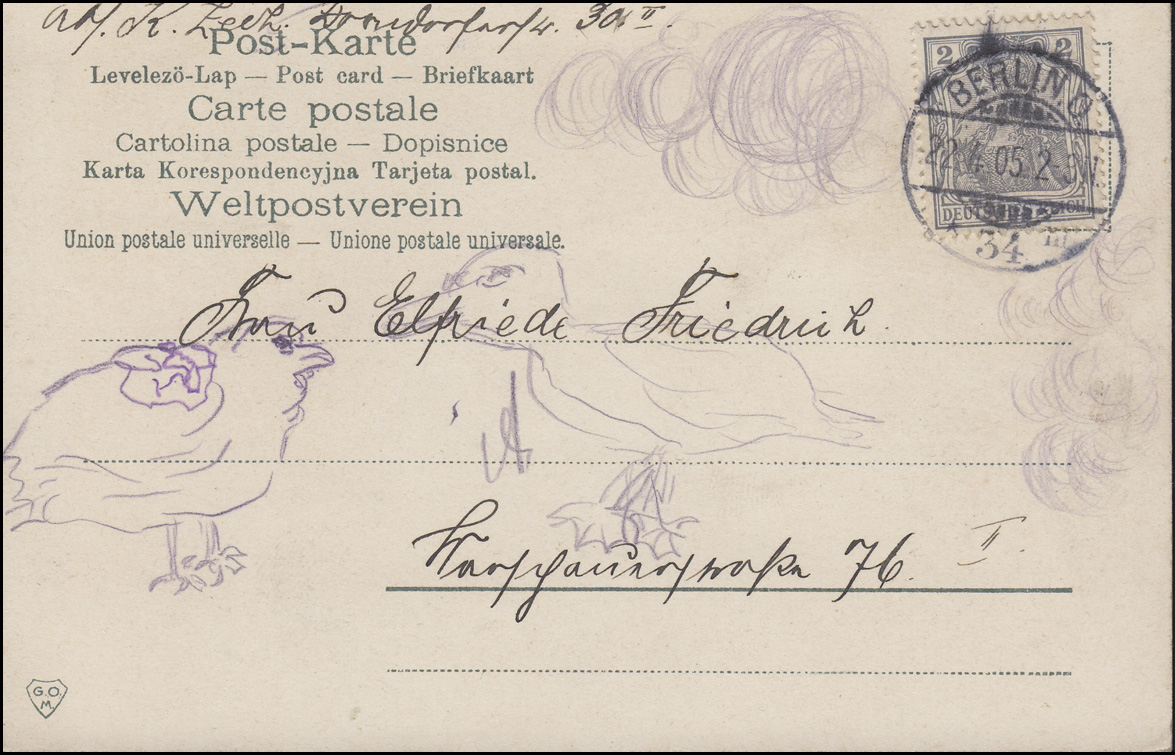 Abs. K. Zech. 30. II
Post-Karte
Levelezö-Lap — Post card — Briefkaart
Carte postale
Cartolina postale — Dopisnice
Karta Korespondencyjna Tarjeta postal.
Weltpostverein
Union postale universelle — Unione postale universale.
2 2
DEUTSCHES REICH
BERLIN O
22.4.05. 2-3N.
* 34 m
Frau Elfriede Friedrich.
Warschauerstraße 76. II.
G.O.
M.